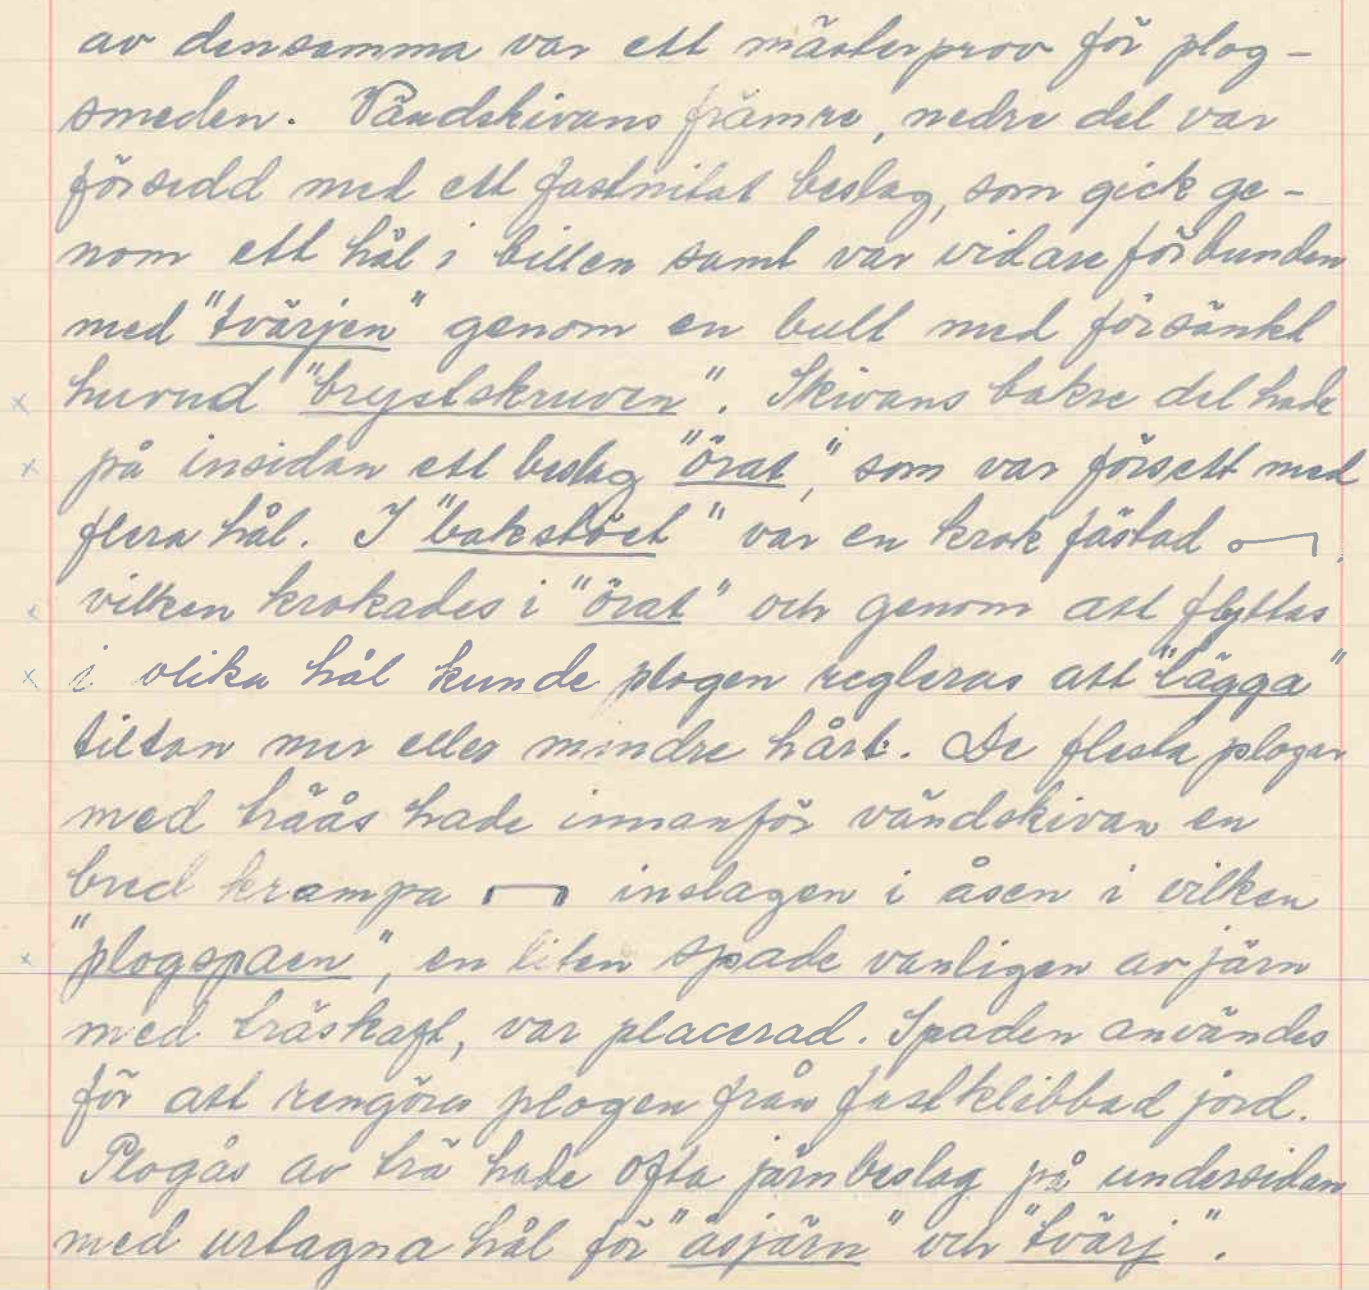 av densamma var ett mästerprov för plog-
smeden. Vändskivans främre, nedre del var
försedd med ett fastnitat beslag, som gick ge-
nom ett hål i billen samt var vidare förbunden
med "tvärjen" genom en bult med försänkt
x huvud "brystskruven". Skivans bakre del hade
x på insidan ett beslag "örat", som var försett med
flera hål. I "bakstöet" var en krok fästad
x vilken krokades i "örat" och genom att flyttas
x i olika hål kunde plogen regleras att "lägga"
tiltan mer eller mindre hårt. De flesta plogar
med träås hade innanför vändskivan en
bred krampa inslagen i åsen i vilken
x "plogspaen", en liten spade vanligen av järn
med träskaft, var placerad. Spaden användes
för att rengöra plogen från fastklibbad jord.
Plogås av trä hade ofta järnbeslag på undersidan
med urtagna hål för "åsjärn" och "tvärj".